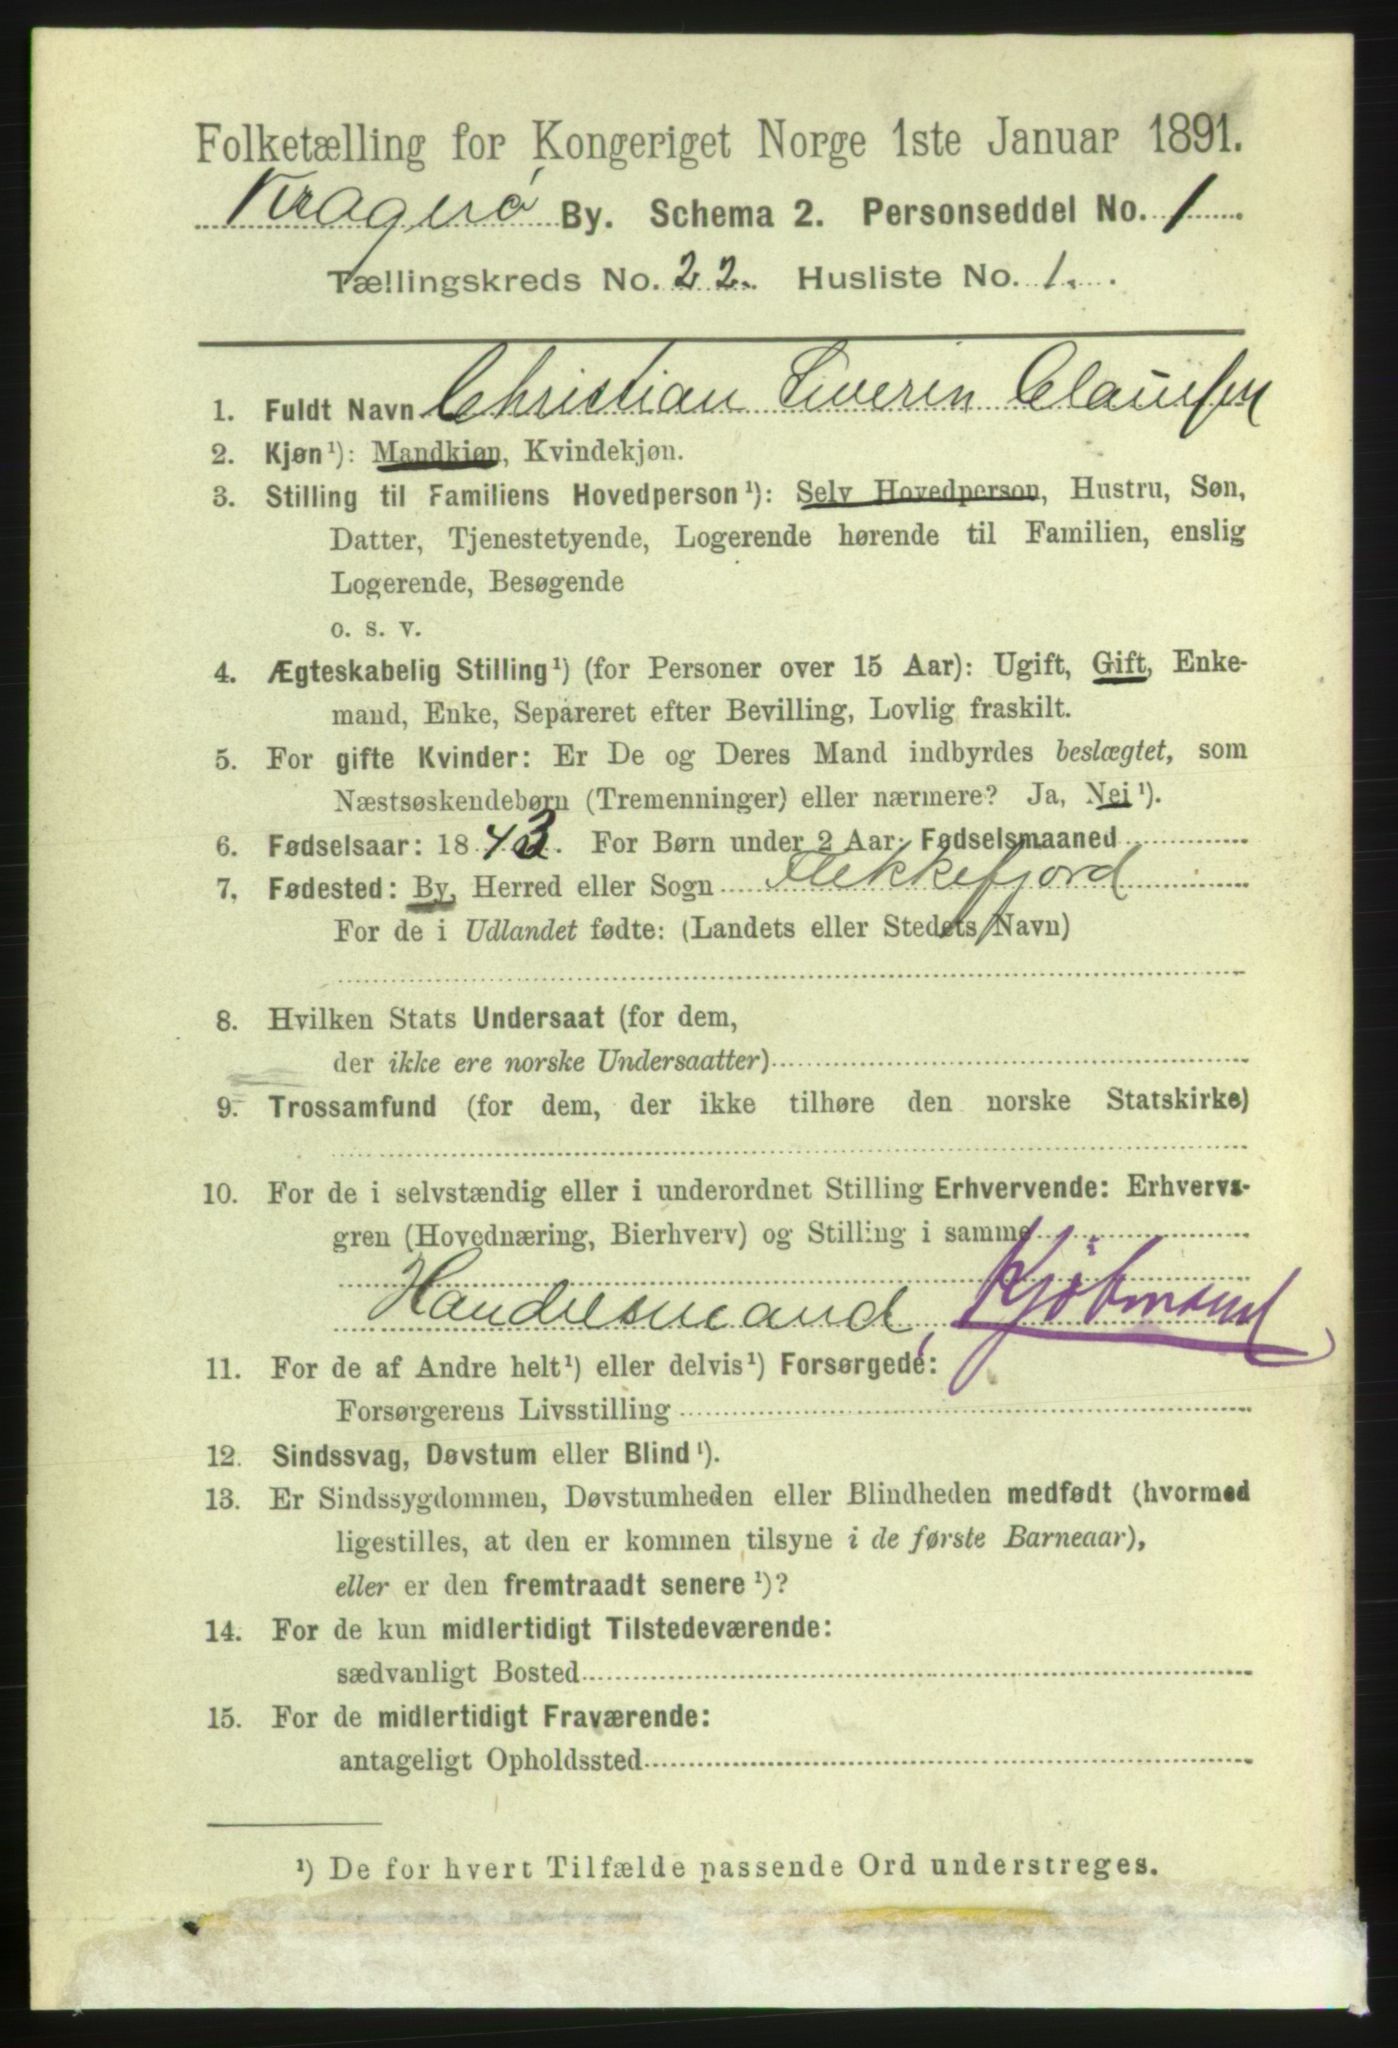 Folketælling for Kongeriget Norge 1ste Januar 1891.
Kragerø By. Schema 2. Personseddel No. 1
Tællingskreds No. 22. Husliste No. 1.
1. Fuldt Navn Christian Severin Claussen
2. Kjøn¹): Mandkjøn, Kvindekjøn.
3. Stilling til Familiens Hovedperson¹): Selv Hovedperson, Hustru, Søn,
Datter, Tjenestetyende, Logerende hørende til Familien, enslig
Logerende, Besøgende
o. s. v.
4. Ægteskabelig Stilling¹) (for Personer over 15 Aar): Ugift, Gift, Enke-
mand, Enke, Separeret efter Bevilling, Lovlig fraskilt.
5. For gifte Kvinder: Er De og Deres Mand indbyrdes beslægtet, som
Næstsøskendebørn (Tremenninger) eller nærmere? Ja, Nei¹).
6. Fødselsaar: 1843. For Børn under 2 Aar: Fødselsmaaned
7. Fødested: By, Herred eller Sogn Flekkefjord
For de i Udlandet fødte: (Landets eller Stedets Navn)
8. Hvilken Stats Undersaat (for dem,
der ikke ere norske Undersaatter)
9. Trossamfund (for dem, der ikke tilhøre den norske Statskirke)
10. For de i selvstændig eller i underordnet Stilling Erhvervende: Erhvervs-
gren (Hovednæring, Bierhverv) og Stilling i samme
Handelsmand, Kjøbmand
11. For de af Andre helt¹) eller delvis¹) Forsørgede:
Forsørgerens Livsstilling
12. Sindssvag, Døvstum eller Blind¹).
13. Er Sindssygdommen, Døvstumheden eller Blindheden medfødt (hvormed
ligestilles, at den er kommen tilsyne i de første Barneaar),
eller er den fremtraadt senere¹)?
14. For de kun midlertidigt Tilstedeværende:
sædvanligt Bosted
15. For de midlertidigt Fraværende:
antageligt Opholdssted
¹) De for hvert Tilfælde passende Ord understreges.